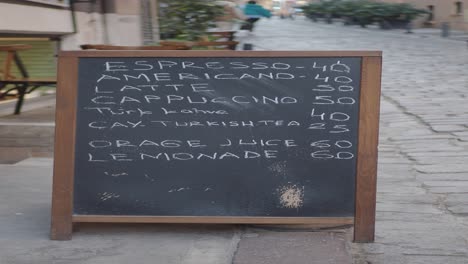 ESPRESSO - 40
AMERICANO - 40
LATTE 50
CAPPUCCINO 50
Türk kahve 40
ÇAY TURKISH TEA 25
ORAGE JUICE 60
LEMONADE 60